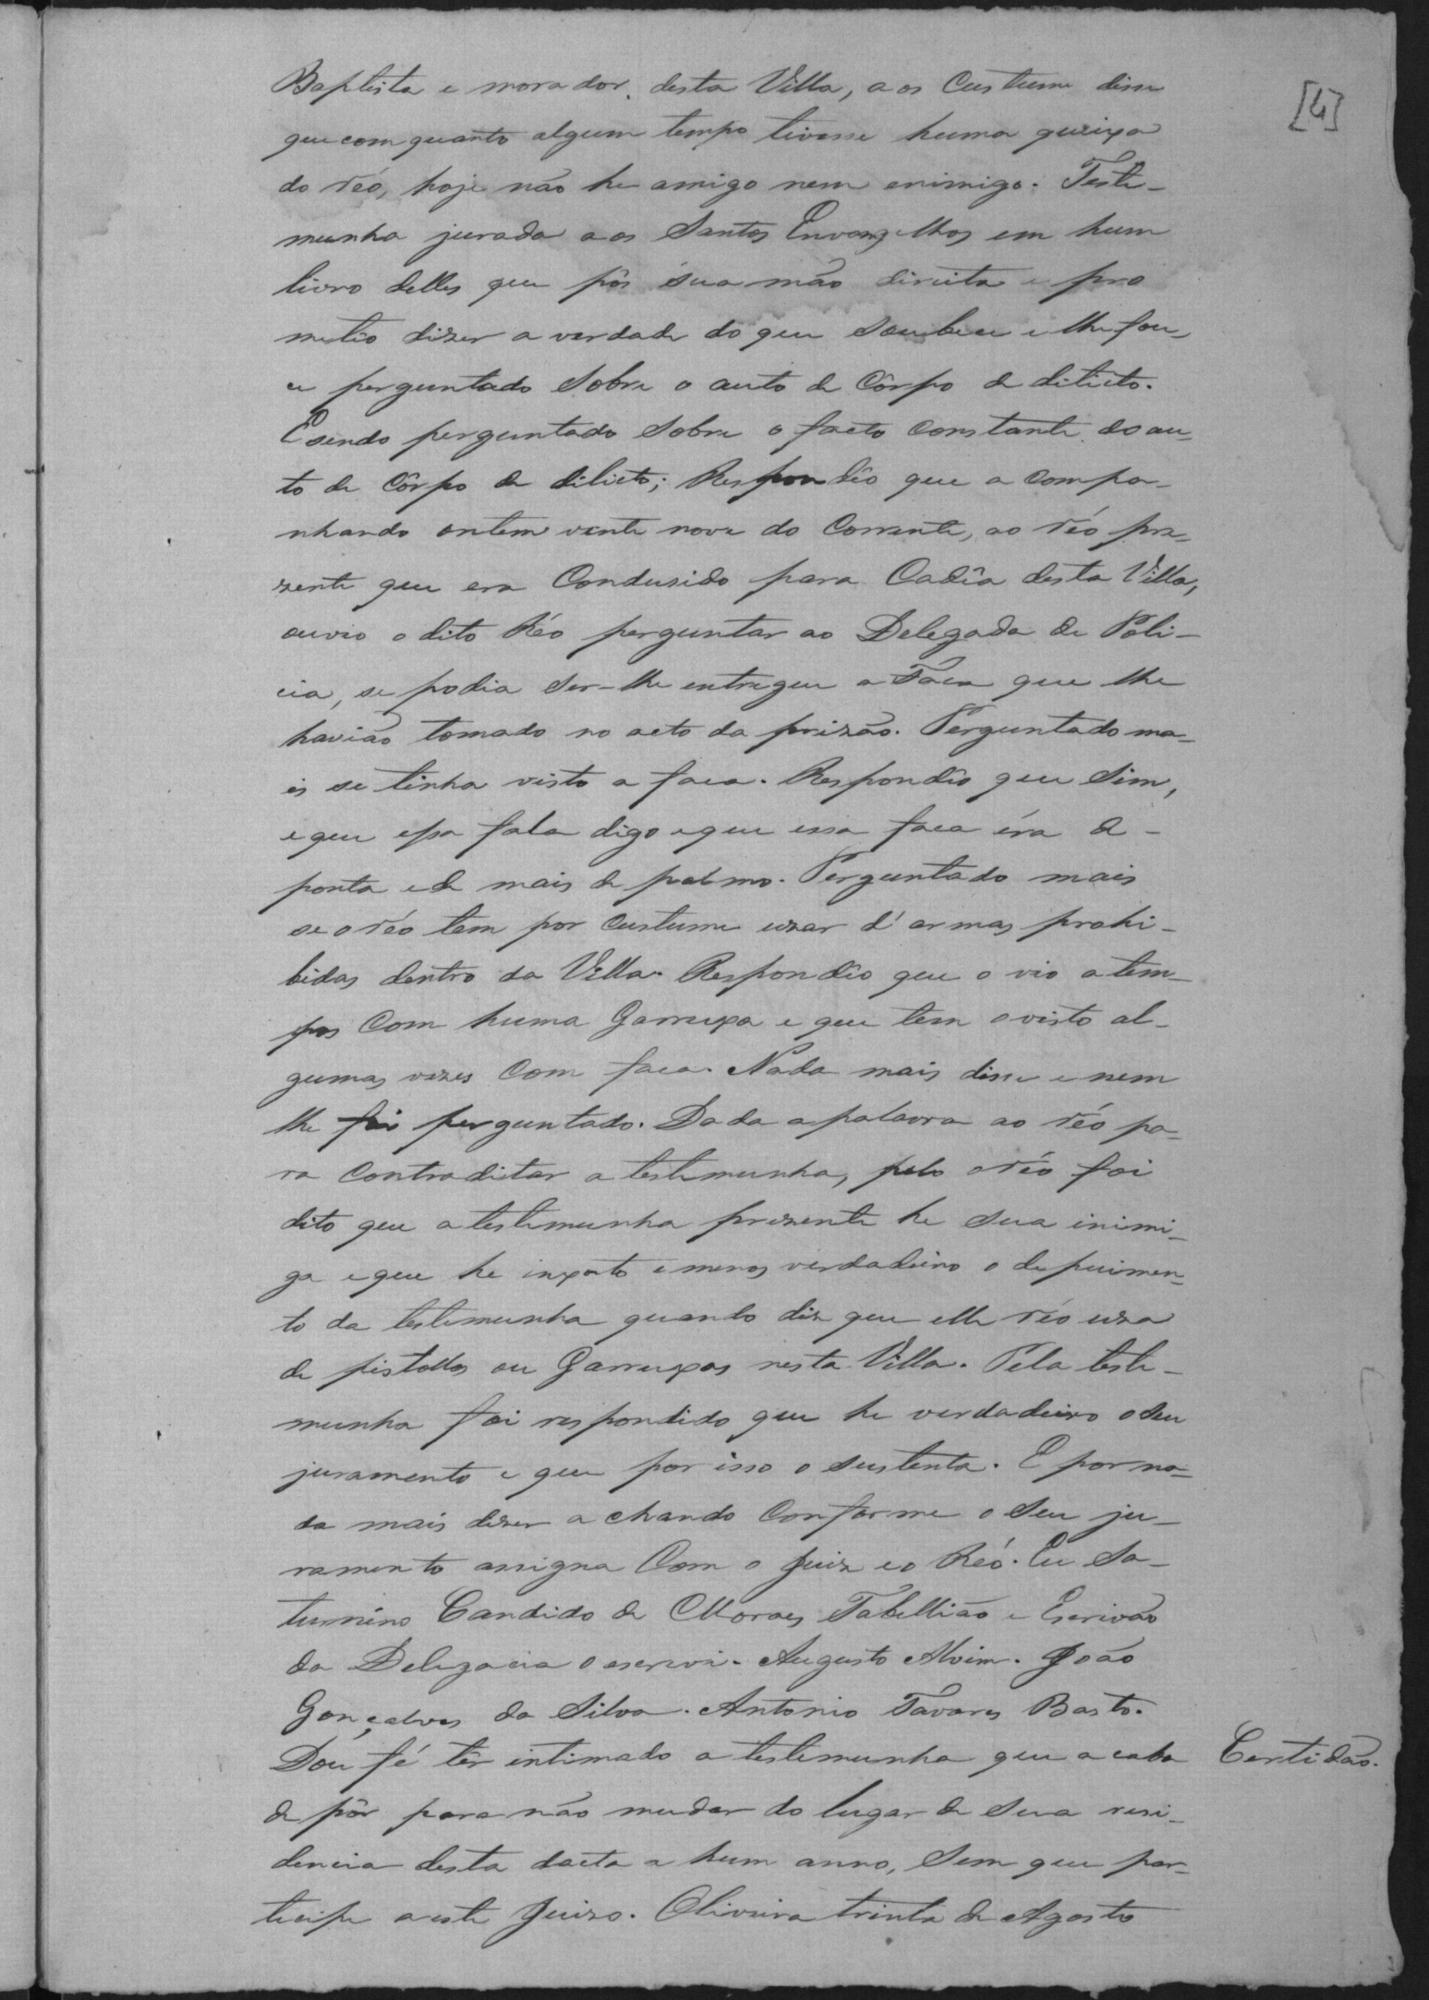 [4]
Baptista e morador desta Villa, aos Custume disse
que com quanto algum tempo tivesse huma queixa
do réo, hoje não he amigo nem enimigo. Teste-
munha jurada aos Santos Envangelhos em hum
livro delles que pôs sua mão direita e pro
metio dizer a verdade do que soubece e lhe fou-
ce perguntado Sobre o auto de Côrpo de dilicto.
E sendo perguntado Sobre o facto Constante do au-
to de Côrpo de dilicto; Respondêo que a compa-
nhando ontem vente nove do Corrente, ao réo pre-
zente que era Condusido para Cadêa desta Villa,
ouvio o dito Réo perguntar ao Delegada de Poli-
cia, se podia ser-lhe entregue a Faca que lhe
havião tomado no acto da prizão. Perguntado ma-
is se tinha visto a faca. Respondêo que Sim,
e que essa fala digo e que essa faca éra de
ponta e de mais de palmo. Perguntado mais
se o réo tem por Custume uzar d'armas prohi-
bidas dentro da Villa. Respondêo que o vio a tem-
pos Com huma Garruxa e que tem o visto al-
gumas vezes Com faca. Nada mais disse e nem
lhe foi perguntado. Dada a palavra ao réo pa-
ra Contraditar a testemunha, pelo o réo foi
dito que a testemunha prezente he sua inimi-
ga e que he inxato e menos verdadeiro o depuimen-
to da testemunha quando diz que elle réo uza
de pistollas ou Garruxas nesta Villa. Pela teste-
munha foi respondido que he verdadeiro o seu
juramento e que por isso o sustenta. E por na-
da mais dizer a chando Conforme o seu ju-
ramento assigna Com o Juiz e o Réo. Eu Sa-
turnino Candido de Moraes Tabellião e Escrivão
da Delegacia o escrevi. Augusto Alvim. João
Gonçalves da Silva. Antonio Tavares Basto.
Dou fé têr intimado a testemunha que acaba
de pôr para não mudar do lugar de Sua resi-
dencia desta dacta a hum anno, Sem que par-
ticipe a este Juizo. Oliveira trinta de Agosto
Certidão.